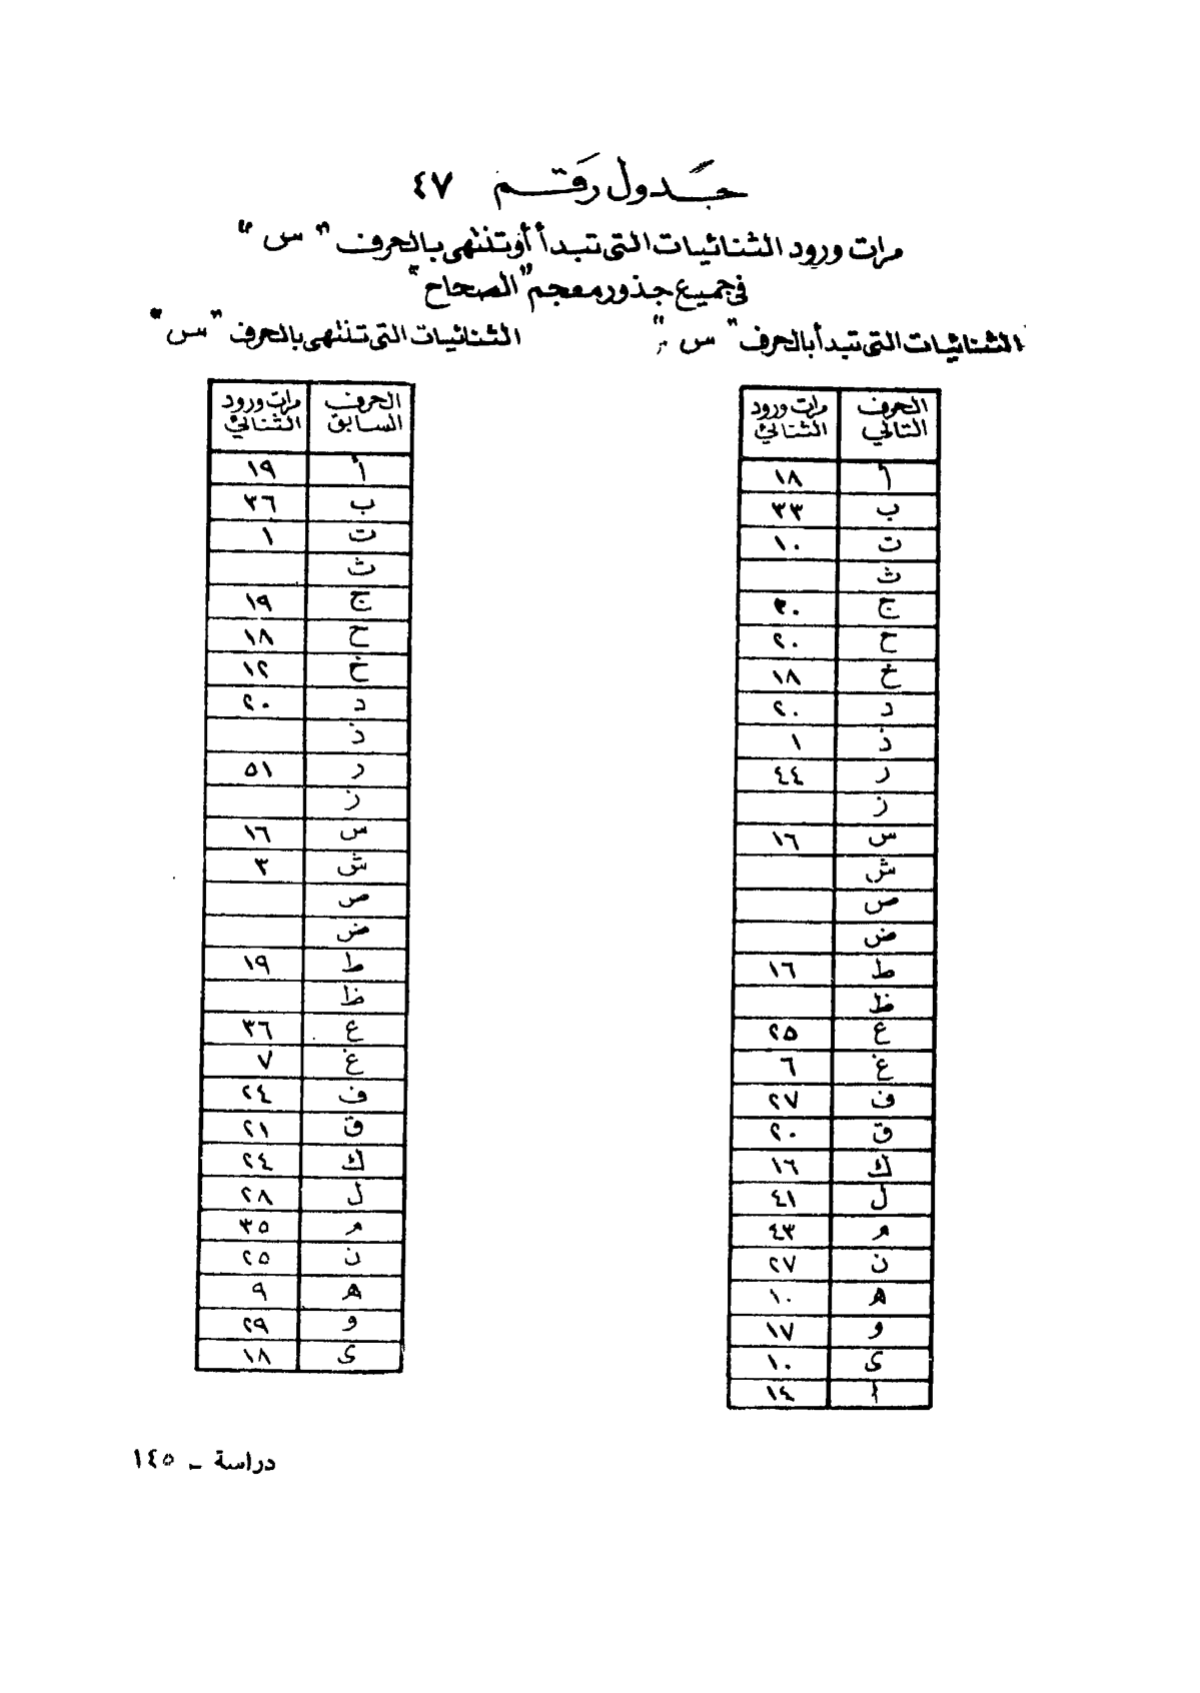 جَدول رَقم ٤٧
مرات ورود الثنائيات التى تبدأ أو تنتهى بالحرف "س"
فى جميع جذور معجم "الصحاح"
الثنائيات التى تبدأ بالحرف "س"
الحرف التالي مرات ورود الثنائي
أ ١٨
ب ٣٣
ت ١٠
ث
ج ٢٠
ح ٢٠
خ ١٨
د ٢٠
ذ ١
ر ٤٤
ز
س ١٦
ش
ص
ض
ط ١٦
ظ
ع ٢٥
غ ٦
ف ٢٧
ق ٢٠
ك ١٦
ل ٤١
م ٤٣
ن ٢٧
ه ١٠
و ١٧
ى ١٠
ا ١٤
الثنائيات التى تنتهى بالحرف "س"
الحرف السابق مرات ورود الثنائي
أ ١٩
ب ٣٦
ت ١
ث
ج ١٩
ح ١٨
خ ١٢
د ٢٠
ذ
ر ٥١
ز
س ١٦
ش ٣
ص
ض
ط ١٩
ظ
ع ٣٦
غ ٧
ف ٢٤
ق ٢١
ك ٢٤
ل ٢٨
م ٣٥
ن ٢٥
ه ٩
و ٢٩
ى ١٨
دراسة - ١٤٥